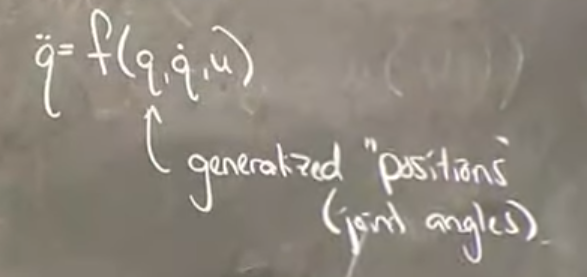 q̈ = f(q, q̇, u)
generalized "positions"
(joint angles).